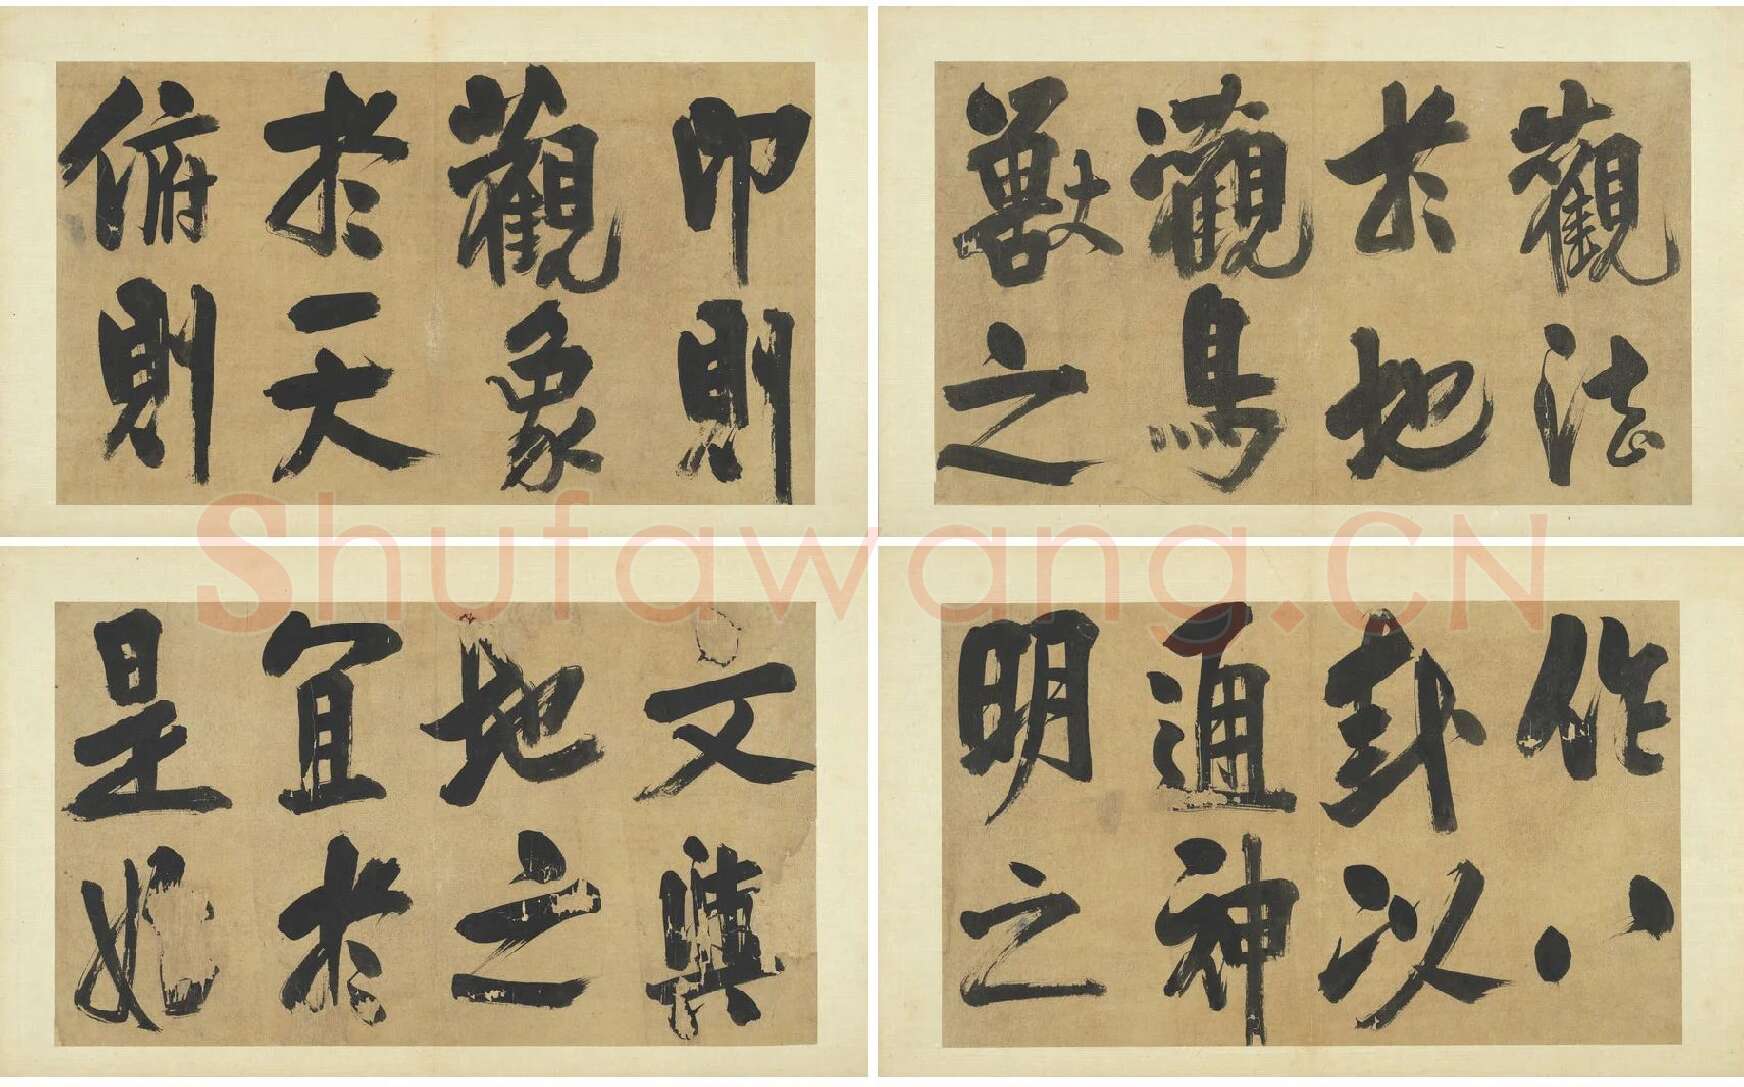 卬則
觀象
於天
俯則
觀法
於地
觀鳥
獸之
文與
地之
宜於
是始
作八
卦以
通神
明之
Shufawang.CN